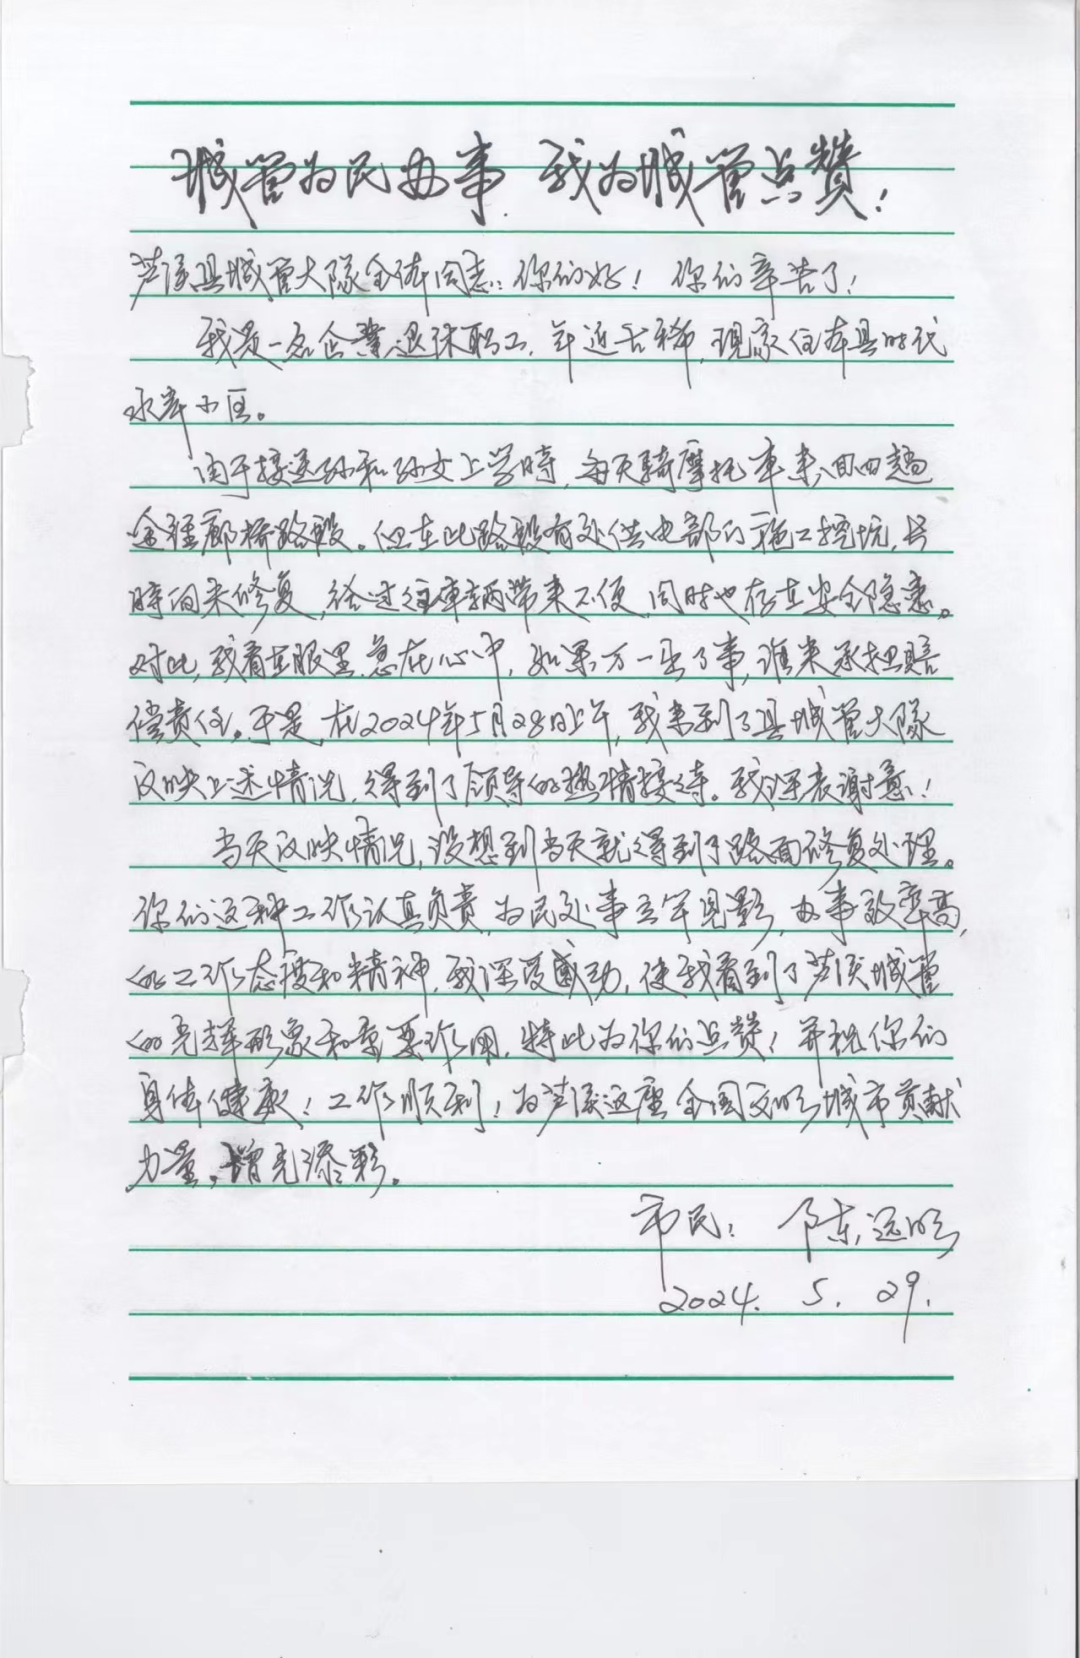 城管为民办事 我为城管点赞！
芦溪县城管大队全体同志：你们好！ 你们辛苦了！
我是一名企業退休职工，年近古稀，现家住本县时代
水岸小区。
由于接送孙和孙女上学時，每天骑摩托車来回四趟
金径廊桥路段。但在此路段有处供电部门施工挖坑，长
時间未修复，给过往車辆带来不便，同时也存在安全隐患。
对此，我看在眼里急在心中，如果万一出了事，谁来承担赔
偿责任。于是，在2024年5月28日上午，我来到了县城管大隊
反映上述情况，得到了领导的热情接待。我深表谢意！
当天反映情况，没想到当天就得到了路面修复处理。
你们这种工作认真负责，为民处事立竿见影，办事效率高，
的工作态度和精神，我深受感动，使我看到了芦溪城管
的光辉形象和重要作用，特此为你们点赞！并祝你们
身体健康！工作顺利！为芦溪这座全国文明城市贡献
力量，增光添彩。
市民： 陈远明
2024. 5. 29.